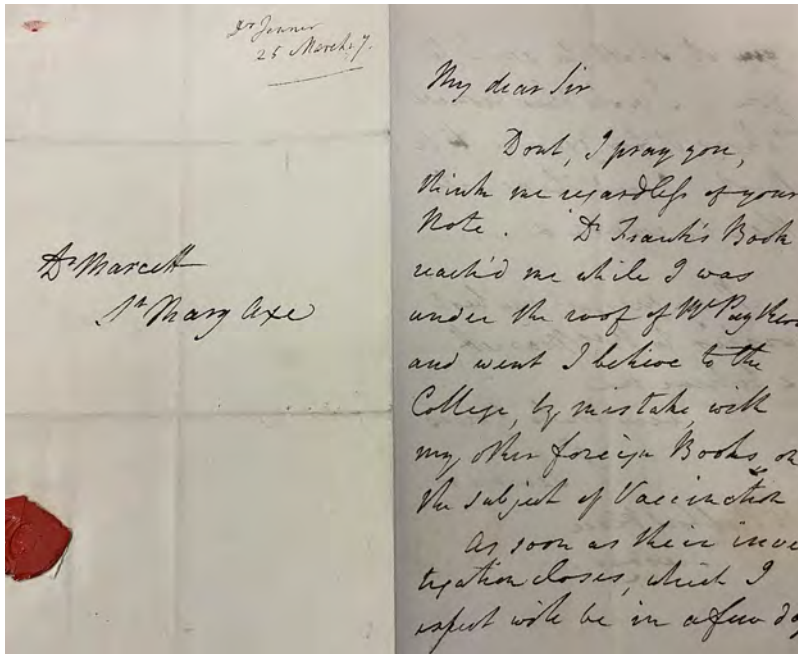 Dr Jenner
25 March. 7.
Dr Marcett
St Mary Axe
My dear Sir
Dont, I pray you,
think me regardless of your
Note. Dr Frank's Book
reach'd me while I was
under the roof of Mr
and went I believe to the
College, by mistake, with
my other foreign Books on
the subject of Vaccination
As soon as their inve
tigation closes, which I
expect will be in a few